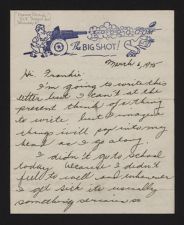 The BIG SHOT!
March 6, 1945
Hi Frankie,
I'm going to write this
letter but I can't at the
present think of a thing
to write but I imagine
things will pop into my
head as I go along.
I didn't go to school
today because I didn't
feel to well and whenever
I get sick its usually
something serious so